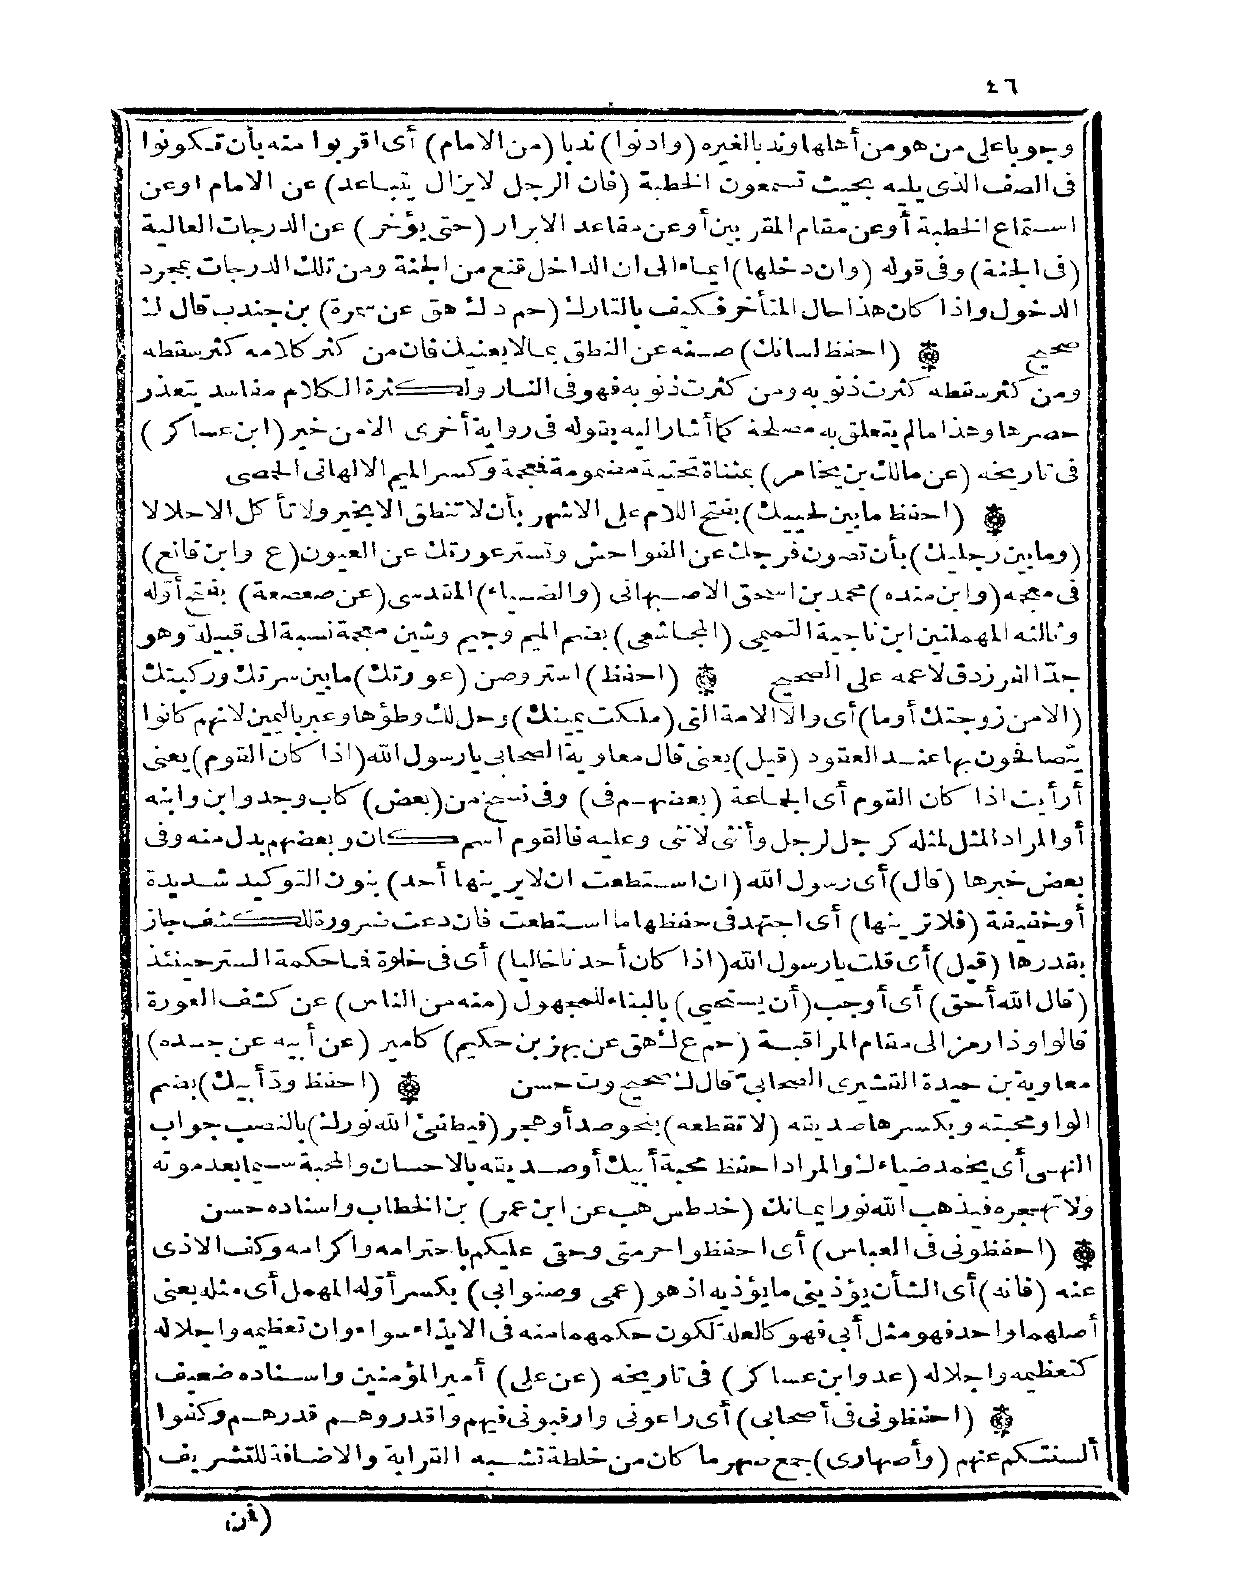 ٤٦
وجوبا على من هو من أهلها وندبا لغيره (وادنوا) ندبا (من الامام) أى اقربوا منه بأن تكونوا
فى الصف الذى يليه بحيث تسمعون الخطبة (فان الرجل لا يزال يتباعد) عن الامام أو عن
استماع الخطبة أو عن مقام المقربين أو عن مقاعد الابرار (حتى يؤخر) عن الدرجات العالية
(فى الجنة) وفى قوله (وان دخلها) ايماء الى ان الداخل قنع من الجنة ومن تلك الدرجات بمجرد
الدخول واذا كان هذا حال المتأخر فكيف بالتارك (حم د ك هق عن سمرة) بن جندب قال ك
صحيح ۞ (احفظ لسانك) صنه عن النطق بما لا يعنيك فان من كثر كلامه كثر سقطه
ومن كثر سقطه كثرت ذنوبه ومن كثرت ذنوبه فهو فى النار ولكثرة الكلام مفاسد يتعذر
حصرها وهذا مالم يتعلق به مصلحة كما أشار اليه بقوله فى رواية أخرى الا من خير (ابن عساكر)
فى تاريخه (عن مالك بن يخامر) بمثناة تحتية مضمومة فمعجمة وكسر الميم الالهانى الحمصى
۞ (احفظ ما بين لحييك) بفتح اللام على الاشهر بأن لا تنطق الا بخير ولا تأكل الا حلالا
(وما بين رجليك) بأن تصون فرجك عن الفواحش وتستر عورتك عن العيون (ع وابن قانع)
فى معجمه (وابن منده) محمد بن اسحق الاصبهانى (والضياء) المقدسى (عن صعصعة) بفتح أوله
وثالثه المهملتين ابن ناجية التميمى (المجاشعى) بضم الميم وجيم وشين معجمة نسبة الى قبيلة وهو
جد الفرزدق لا عمه على الصحيح ۞ (احفظ) استر وصن (عورتك) ما بين سرتك وركبتك
(الا من زوجتك أو ما) أى والا الامة التى (ملكت يمينك) وحل لك وطؤها وعبر باليمين لانهم كانوا
يتصافحون بها عند العقود (قيل) يعنى قال معاوية الصحابى يا رسول الله (اذا كان القوم) يعنى
أرأيت اذا كان القوم أى الجماعة (بعضهم فى) وفى نسخ من (بعض) كاب وجد وابن وابنه
أو المراد المثل لمثله كرجل لرجل وأنثى لانثى وعليه فالقوم اسم كان وبعضهم بدل منه وفى
بعض خبرها (قال) أى رسول الله (ان استطعت ان لا يرينها أحد) بنون التوكيد شديدة
أو خفيفة (فلا يرينها) أى اجتهد فى حفظها ما استطعت فان دعت ضرورة للكشف جاز
بقدرها (قيل) أى قلت يا رسول الله (اذا كان أحدنا خاليا) أى فى خلوة فما حكمة الستر حينئذ
(قال الله أحق) أى أوجب (أن يستحيى) بالبناء للمجهول (منه من الناس) عن كشف العورة
قالوا وذا رمز الى مقام المراقبة (حم ع ك هق عن بهز بن حكيم) كامير (عن أبيه عن جده)
معاوية بن حيدة القشيرى الصحابى قال ك صحيح وت حسن ۞ (احفظ ود أبيك) بضم
الواو محبته وبكسرها صديقه (لا تقطعه) بنحو صد أو هجر (فيطفئ الله نورك) بالنصب جواب
النهى أى يخمد ضياءك والمراد احفظ محبة أبيك أو صديقه بالاحسان والمحبة سيما بعد موته
ولا تهجره فيذهب الله نور ايمانك (خد طس هب عن ابن عمر) بن الخطاب واسناده حسن
۞ (احفظونى فى العباس) أى احفظوا حرمتى وحقى عليكم باحترامه واكرامه وكف الاذى
عنه (فانه) أى الشأن يؤذينى ما يؤذيه اذ هو (عمى وصنو ابى) بكسر أوله المهمل أى مثله يعنى
أصلهما واحد فهو مثل أبى فهو كالعلة لكون حكمهما منه فى الايذاء سواء وان تعظيمه واجلاله
كتعظيمه واجلاله (عد وابن عساكر) فى تاريخه (عن على) أمير المؤمنين واسناده ضعيف
۞ (احفظونى فى أصحابى) أى راعونى وارقبونى فيهم واقدروهم قدرهم وكفوا
ألسنتكم عنهم (وأصهارى) جمع صهر ما كان من خلطة تشبه القرابة والاضافة للتشريف
(فن